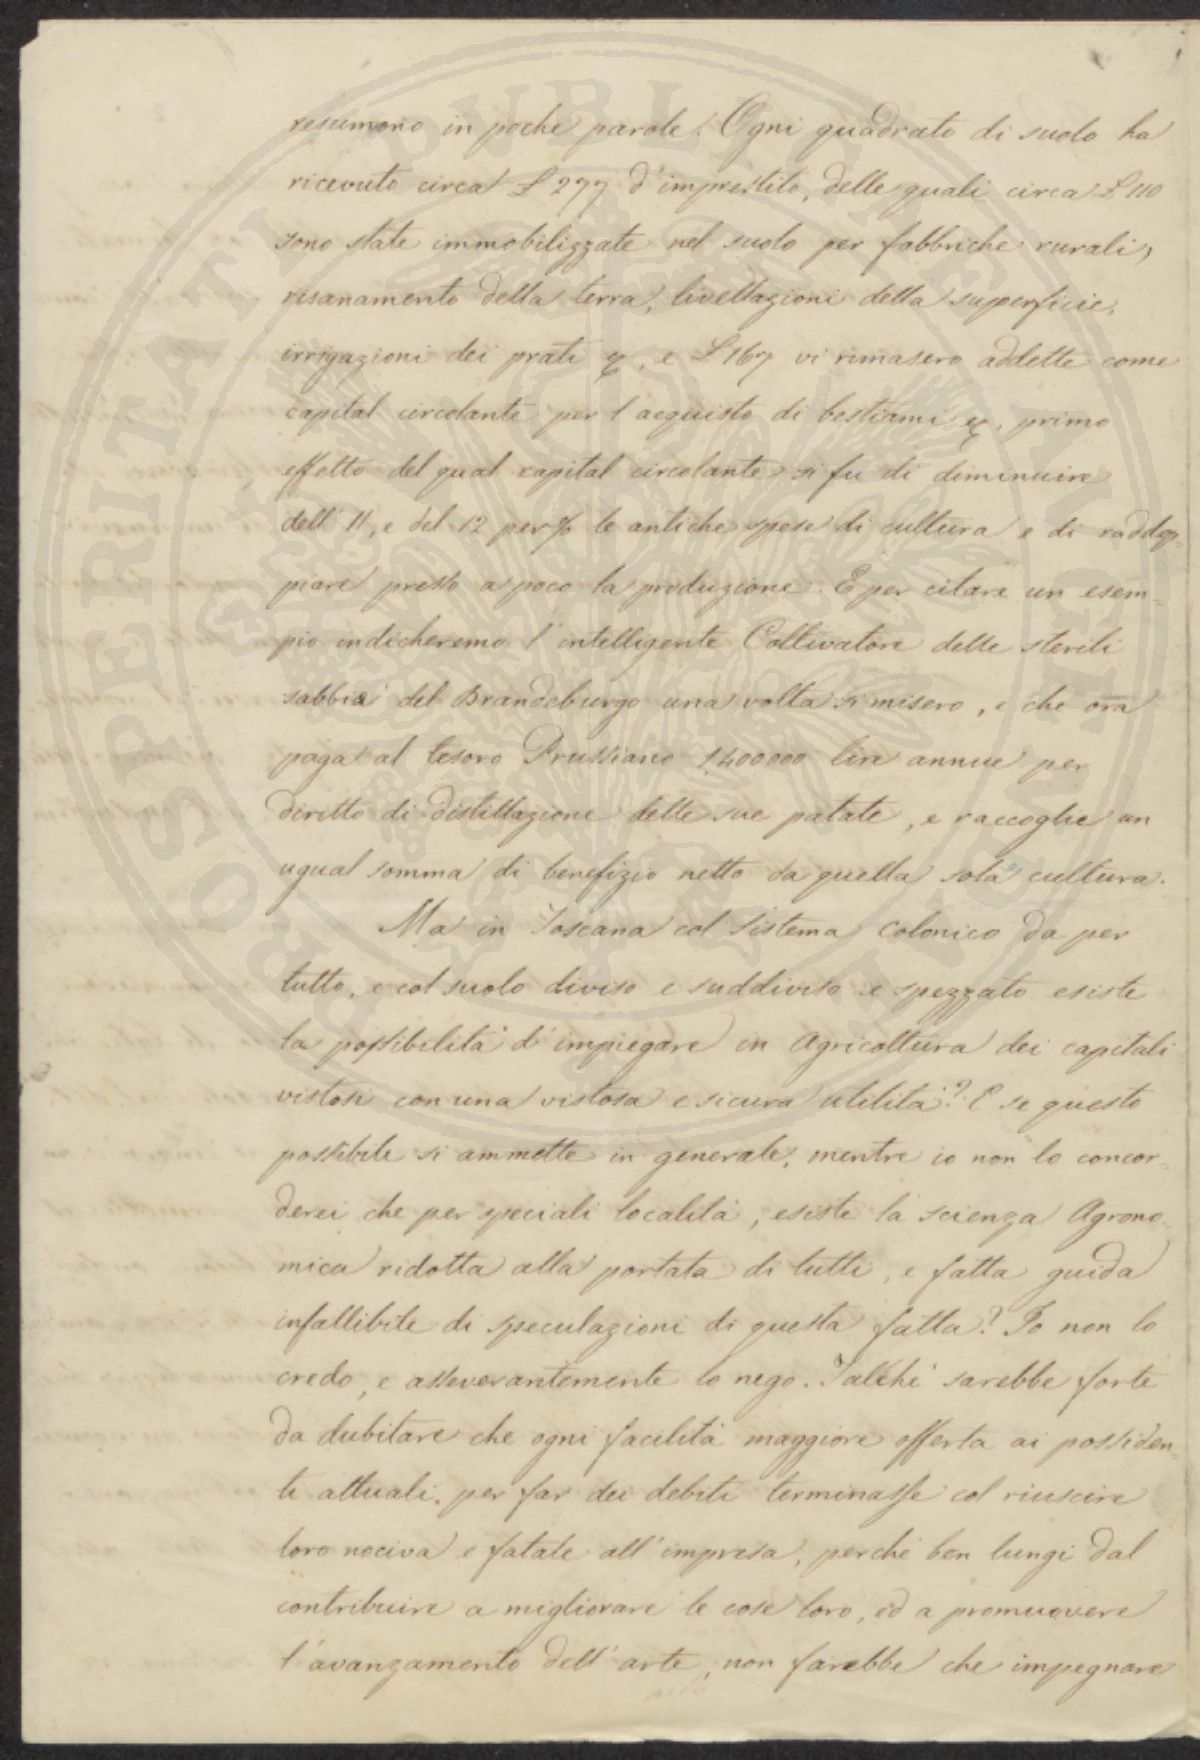 resumono in poche parole. Ogni quadrato di suolo ha
ricevuto circa £ 277 d'imprestito, delle quali circa £ 110
sono state immobilizzate nel suolo per fabbriche rurali,
risanamento della terra, livellazioni della superficie,
irrigazioni dei prati &, e £ 167 vi rimasero addette come
capital circolante per l'acquisto di bestiami &, primo
effetto del qual capital circolante si fu di diminuire
dell' 11, e del 12 per % le antiche spese di cultura e di raddop-
piare presto a poco la produzione. E per citare un esem-
pio indicheremo l'intelligente Coltivatore delle sterili
sabbie del Brandeburgo una volta sì misero, e che ora
paga al tesoro Prussiano 1,400000 lire annue per
diritto di distillazione delle sue patate, e raccoglie un
ugual somma di benefizio netto da quella sola cultura.
Ma in Toscana col sistema colonico da per
tutto, e col suolo diviso e suddiviso e spezzato esiste
la possibilità d'impiegare in Agricoltura dei capitali
vistosi con una vistosa e sicura utilità? E se questo
possibile si ammette in generale, mentre io non lo concor-
derei che per speciali località, esiste la scienza Agrono-
mica ridotta alla portata di tutti, e fatta guida
infallibile di speculazioni di questa fatta? Io non lo
credo, e asseverantemente lo nego. Talchè sarebbe forte
da dubitare che ogni facilità maggiore offerta ai possiden-
ti attuali per far dei debiti terminasse col riuscire
loro nociva e fatale all'impresa, perché ben lungi dal
contribuire a migliorare le cose loro, ed a promuovere
l'avanzamento dell'arte, non farebbe che impegnare
PROSPERITATI PUBLICAE AUGENDAE